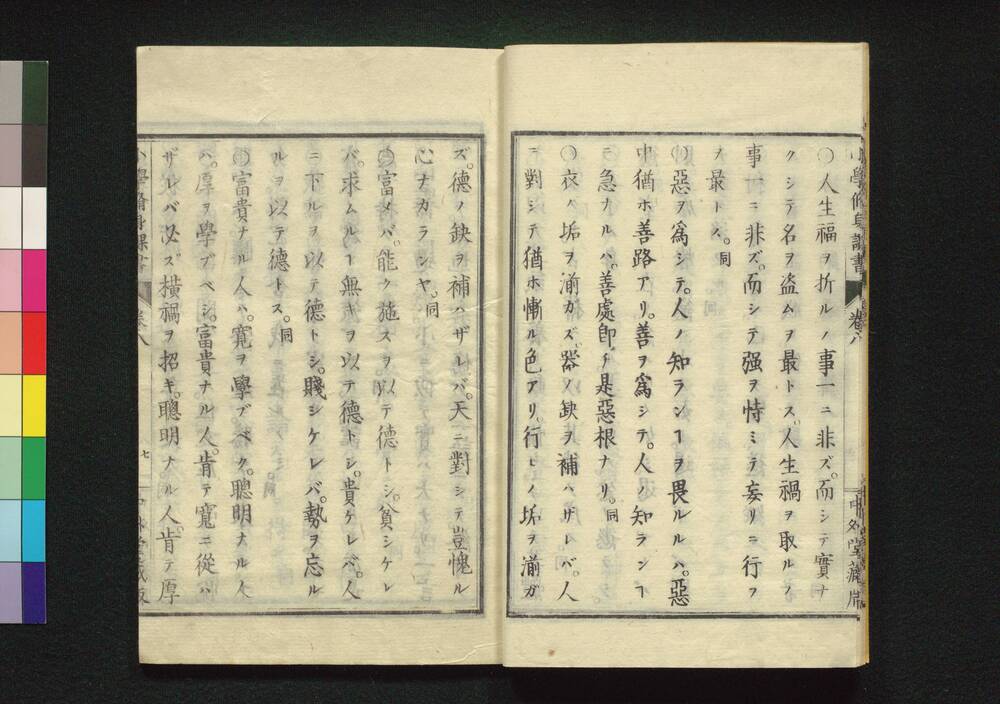 小學修身課書 卷八 中外堂藏版
○人生福ヲ折ルノ事一ニ非ズ。而シテ實ナ
クシテ名ヲ盗ムヲ最トス。人生禍ヲ取ルノ
事一ニ非ズ。而シテ强ヲ恃ミテ妄リニ行フ
ヲ最トス。同
○惡ヲ爲シテ。人ノ知ランヿヲ畏ルルハ。惡
中猶ホ善路アリ。善ヲ爲シテ。人ノ知ランヿ
ニ急ナルハ。善處卽チ是惡根ナリ。同
○衣ハ垢ヲ湔ガズ。器ノ缺ヲ補ハザレバ。人
ニ對シテ猶ホ慚ル色アリ。行ヒノ垢ヲ湔ガ
ズ。德ノ缺ヲ補ハザレバ。天ニ對シテ豈愧ル
心ナカランヤ。同
○富メバ。能ク施スヲ以テ德トシ。貧シケレ
バ。求ムルヿ無キヲ以テ德トシ。貴ケレバ。人
ニ下ルヲ以テ德トシ。賤シケレバ。勢ヲ忘ル
ルヲ以テ德トス。同
○富貴ナル人ハ。寬ヲ學ブベク。聰明ナル人
ハ。厚ヲ學ブベシ。富貴ナル人。肯テ寬ニ從ハ
ザレバ必ズ橫禍ヲ招キ。聰明ナル人。肯テ厚
卷八 七